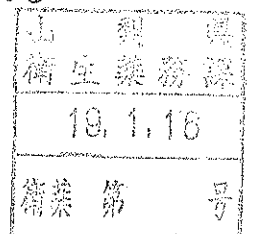 山梨県
衛生薬務課
19. 1. 16
衛薬 第 号